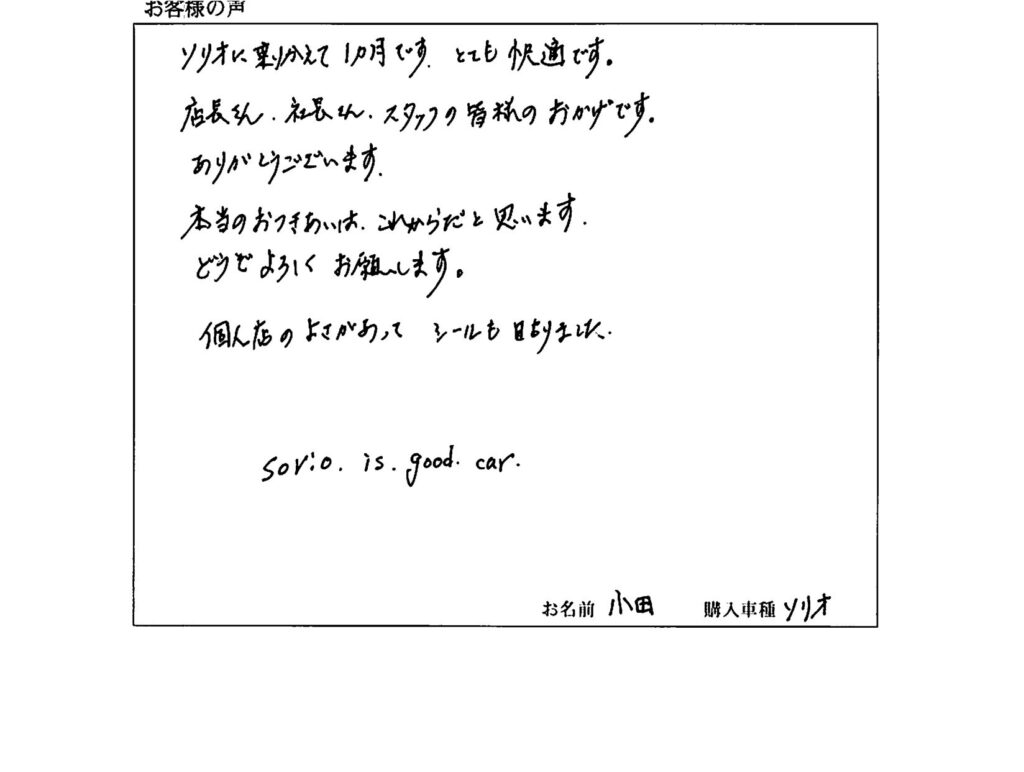 お客様の声
ソリオに乗りかえて1カ月です。とても快適です。
店長さん、社長さん、スタッフの皆様のおかげです。
ありがとうございます。
本当のおつきあいは、これからだと思います。
どうぞよろしくお願いします。
個人店のよさがあって シールも貼りました。
sorio. is. good. car.
お名前 小田 購入車種 ソリオ